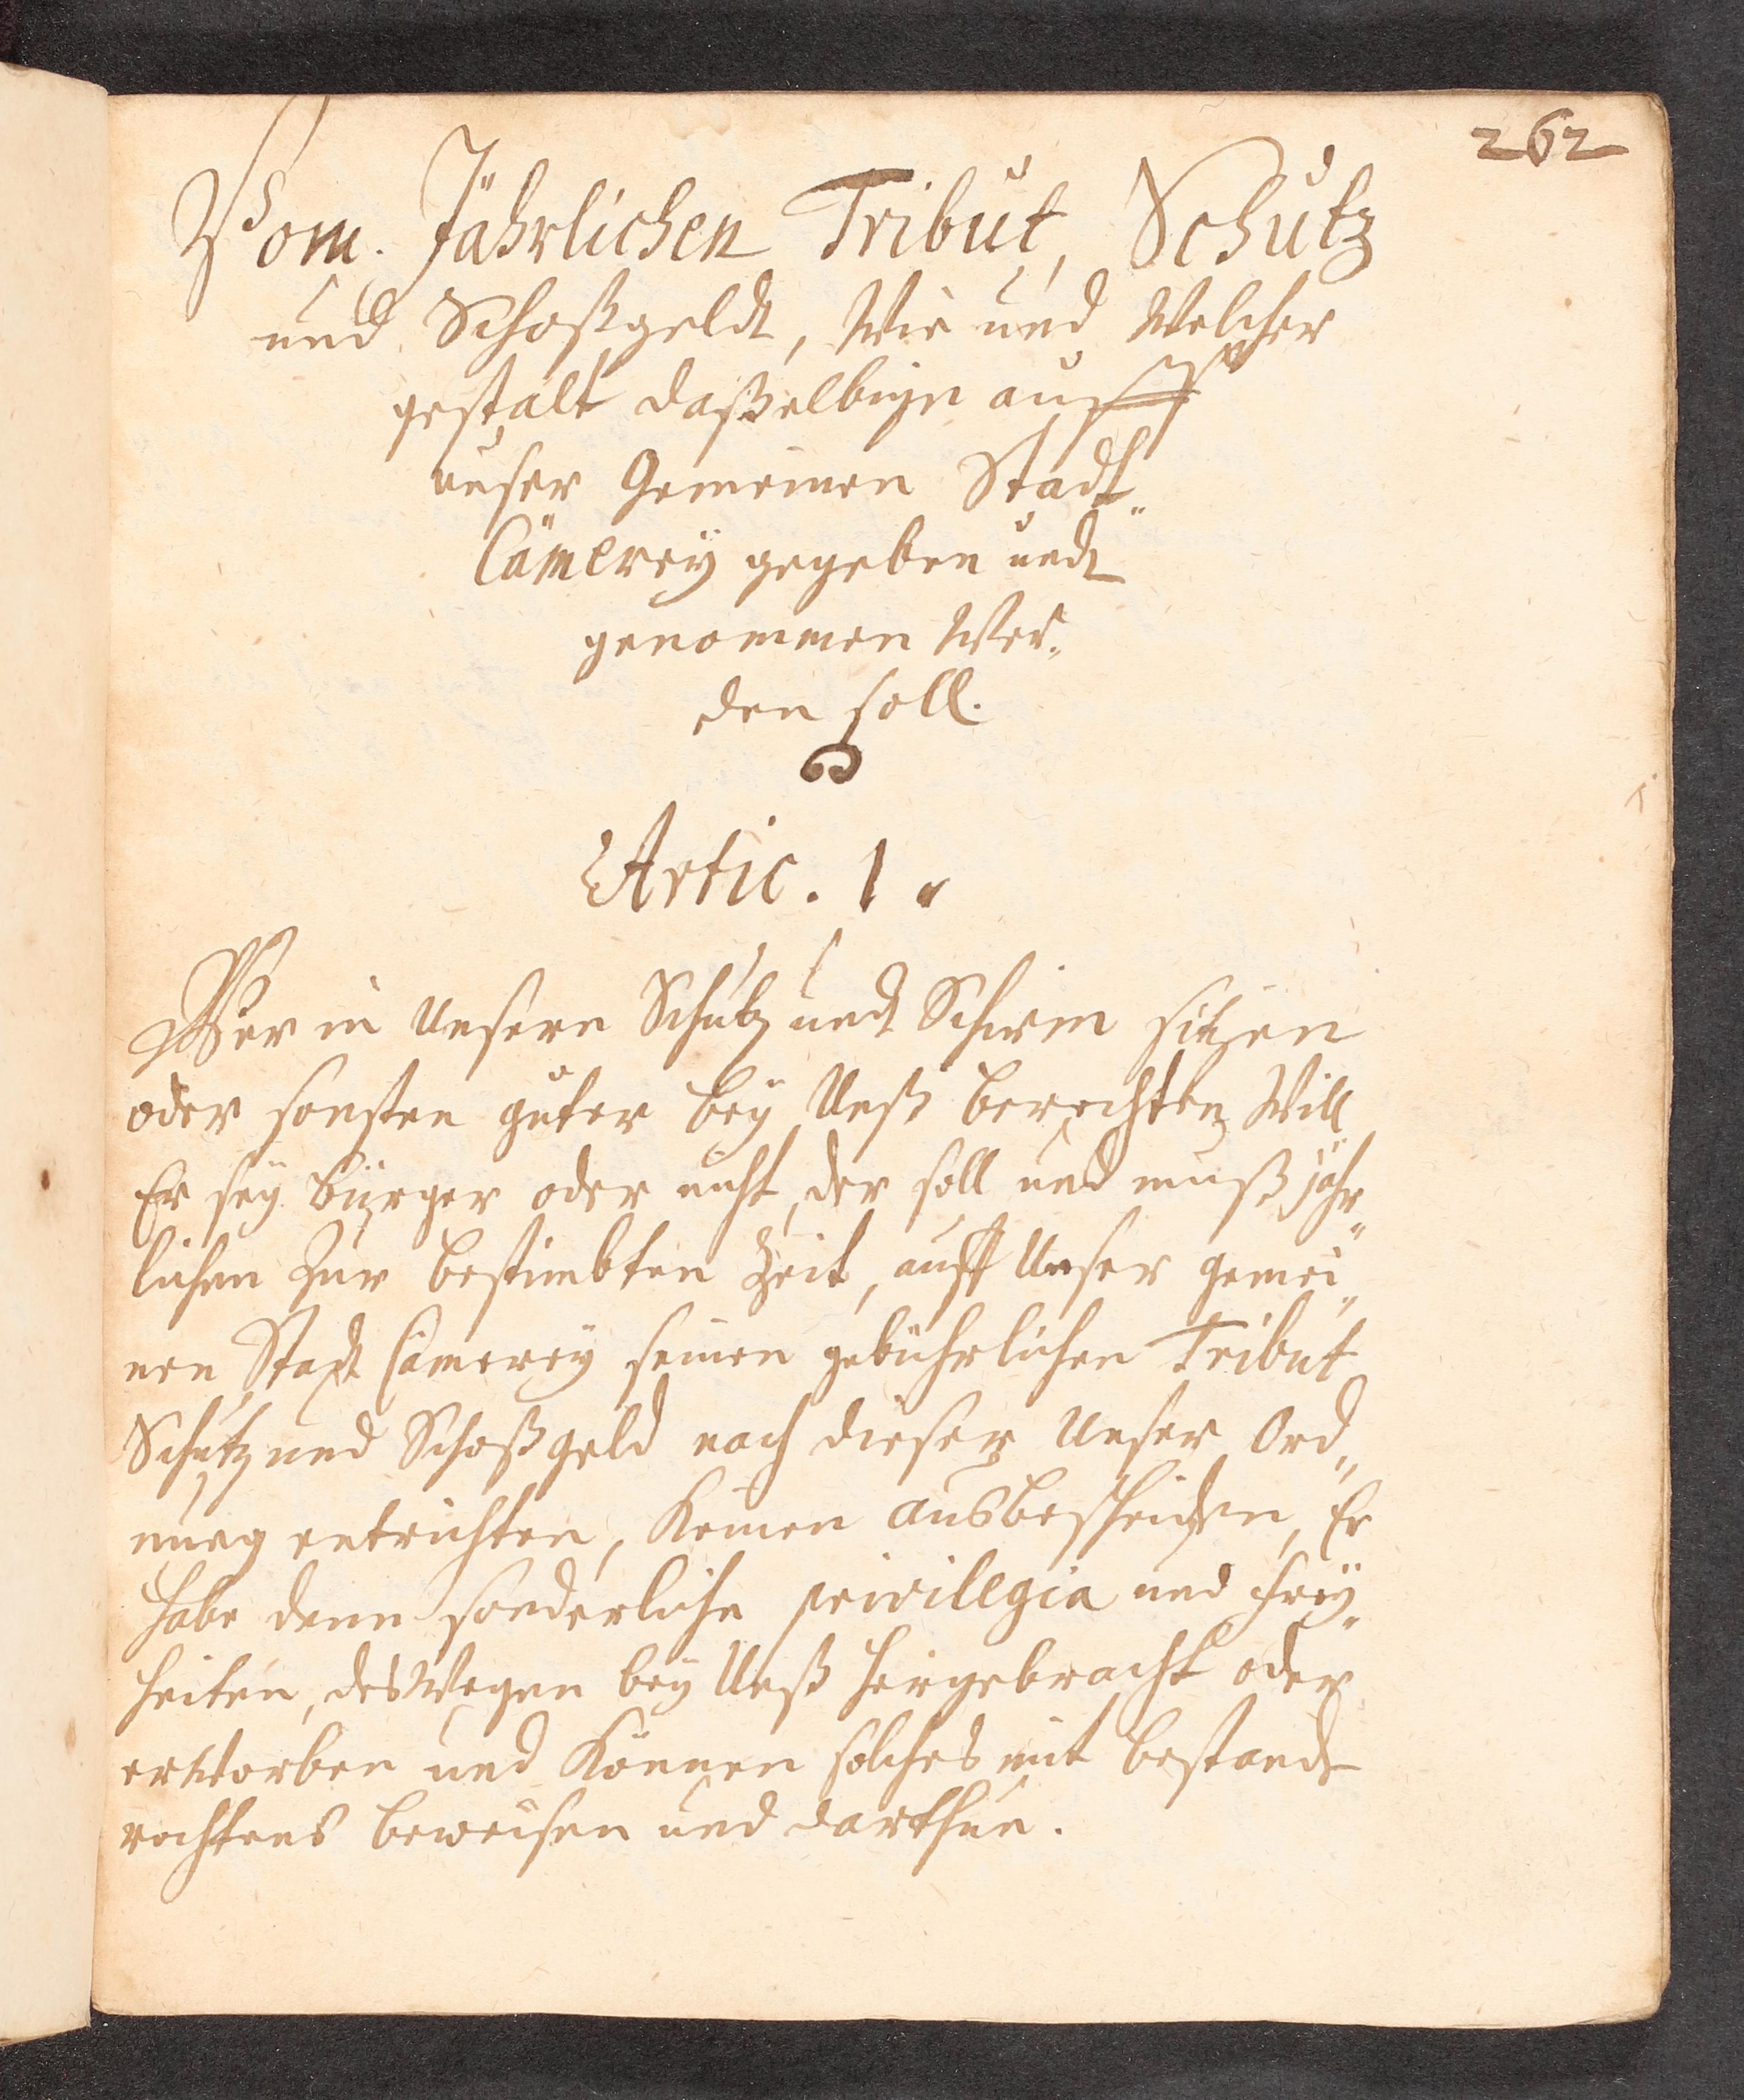 262
Vom Jährlichen Tribut, Schutz
und Schoßgeldt, Wie und Welcher
gestalt daßelbige auff
unser Gemeinen Stadt„
Cämerey gegeben undt
genommen Wer„
den soll.
Artic. 1.
Wer in Unsern Schutz undt Schirm sitzen
oder sonsten güter bey Unß berechten Will
Er sey bürger oder nicht, der soll und muß jähr„
lichen Zur bestimbten Zeit, auff Unser gemei„
nen Stadt Cämerey seinen gebührlichen Tribut
Schutz und Schoßgeld nach dieser Unser Ord„
nung entrichten, Keinen ausbescheiden, Er
habe denn sonderliche privilegia und frey„
heiten, desWegen bey Unß hergebracht oder
erWorben und Können solches mit bestandt
rechtens beweisen und darthun.